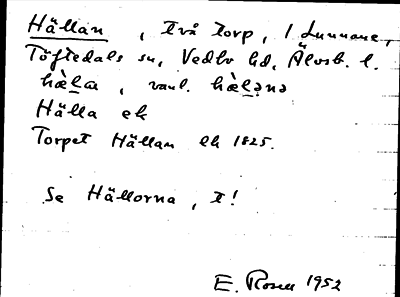 Hällan, två torp, / Lunnane,
Töftedals sn, Vedbo hd, Älvsb. l.
hæ̀la, vanl. hæ̀lənə
Hälla ek
Torpet Hällan ek 1825.
Se Hällorna, t!
E. Rosen 1952